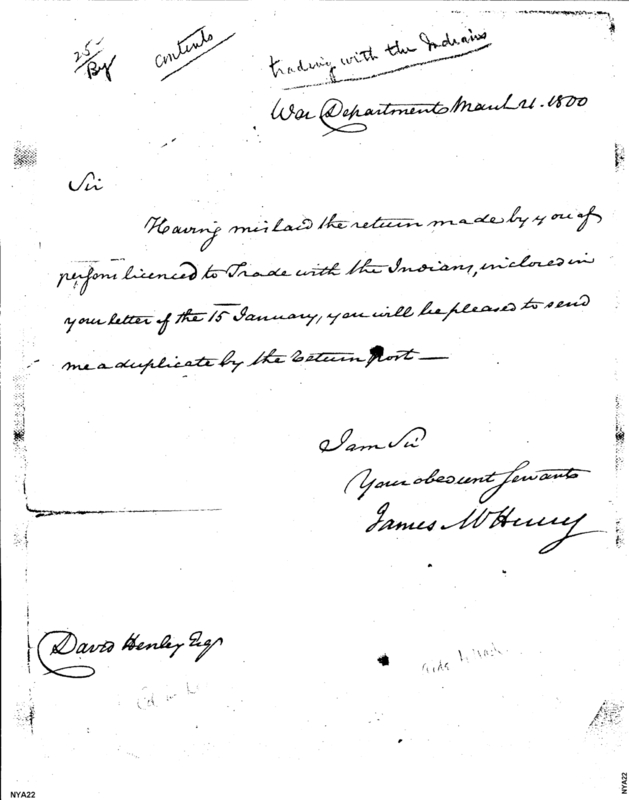 25
By
contents
trading with the Indians
War Department March 21. 1800
Sir
Having mislaid the return made by you of
persons licenced to Trade with the Indians, inclosed in
your letter of the 15 January, you will be pleased to send
me a duplicate by the return post —
I am Sir
Your obedient Servant
James McHenry
David Henley Esqr
NYA22
NYA22